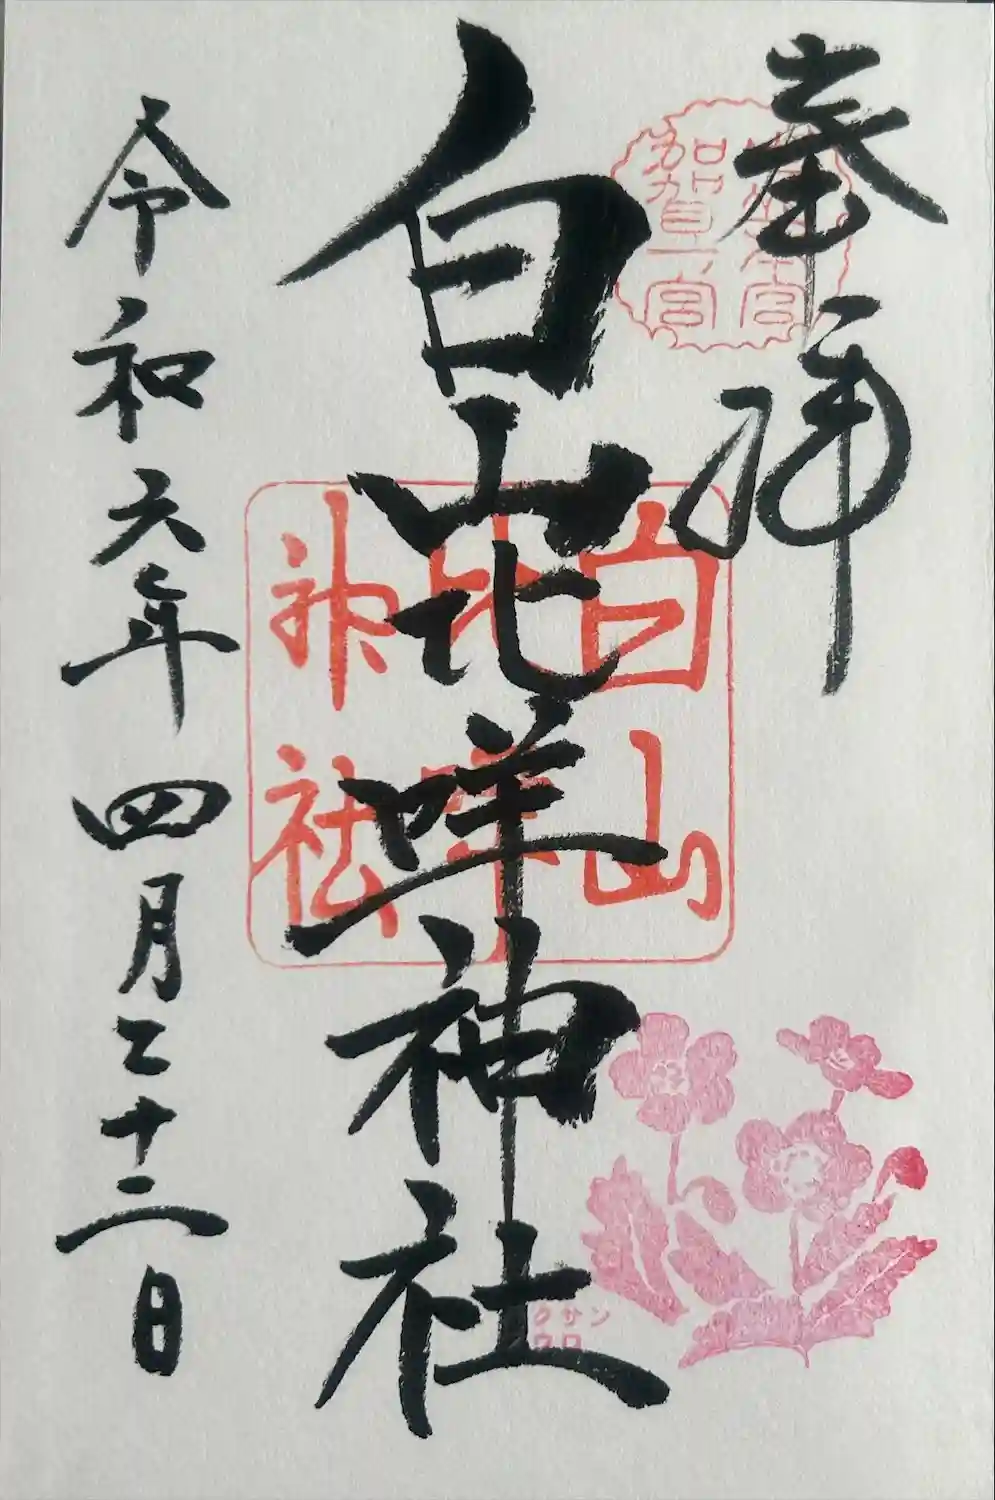 奉拝
加賀一宮
白山比咩神社
白山
比咩
神社
令和六年四月二十二日
クサン